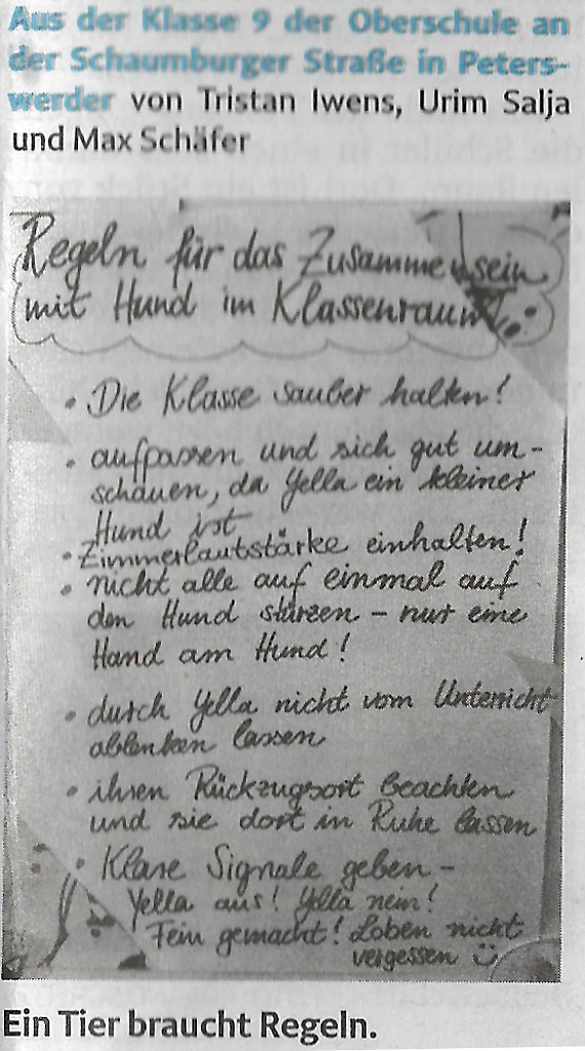 Aus der Klasse 9 der Oberschule an
der Schaumburger Straße in Peters-
werder von Tristan Iwens, Urim Salja
und Max Schäfer
Regeln für das Zusammensein
mit Hund im Klassenraum
• Die Klasse sauber halten!
• aufpassen und sich gut um-
schauen, da Yella ein kleiner
Hund ist
• Zimmerlautstärke einhalten!
• nicht alle auf einmal auf
den Hund stürzen – nur eine
Hand am Hund!
• durch Yella nicht vom Unterricht
ablenken lassen
• ihren Rückzugsort beachten
und sie dort in Ruhe lassen
• Klare Signale geben –
Yella aus! Yella nein!
Fein gemacht! Loben nicht
vergessen ☺
Ein Tier braucht Regeln.